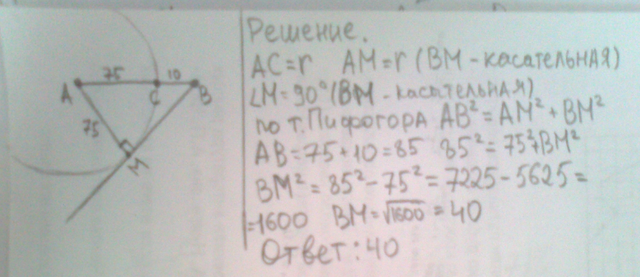 75 10
A C B
75
M
Решение.
AC=r AM=r (BM-касательная)
∠M=90°(BM-касательная)
по т. Пифогора AB²=AM²+BM²
AB=75+10=85 85²=75²+BM²
BM²=85²-75²=7225-5625=
=1600 BM=√1600=40
Ответ:40